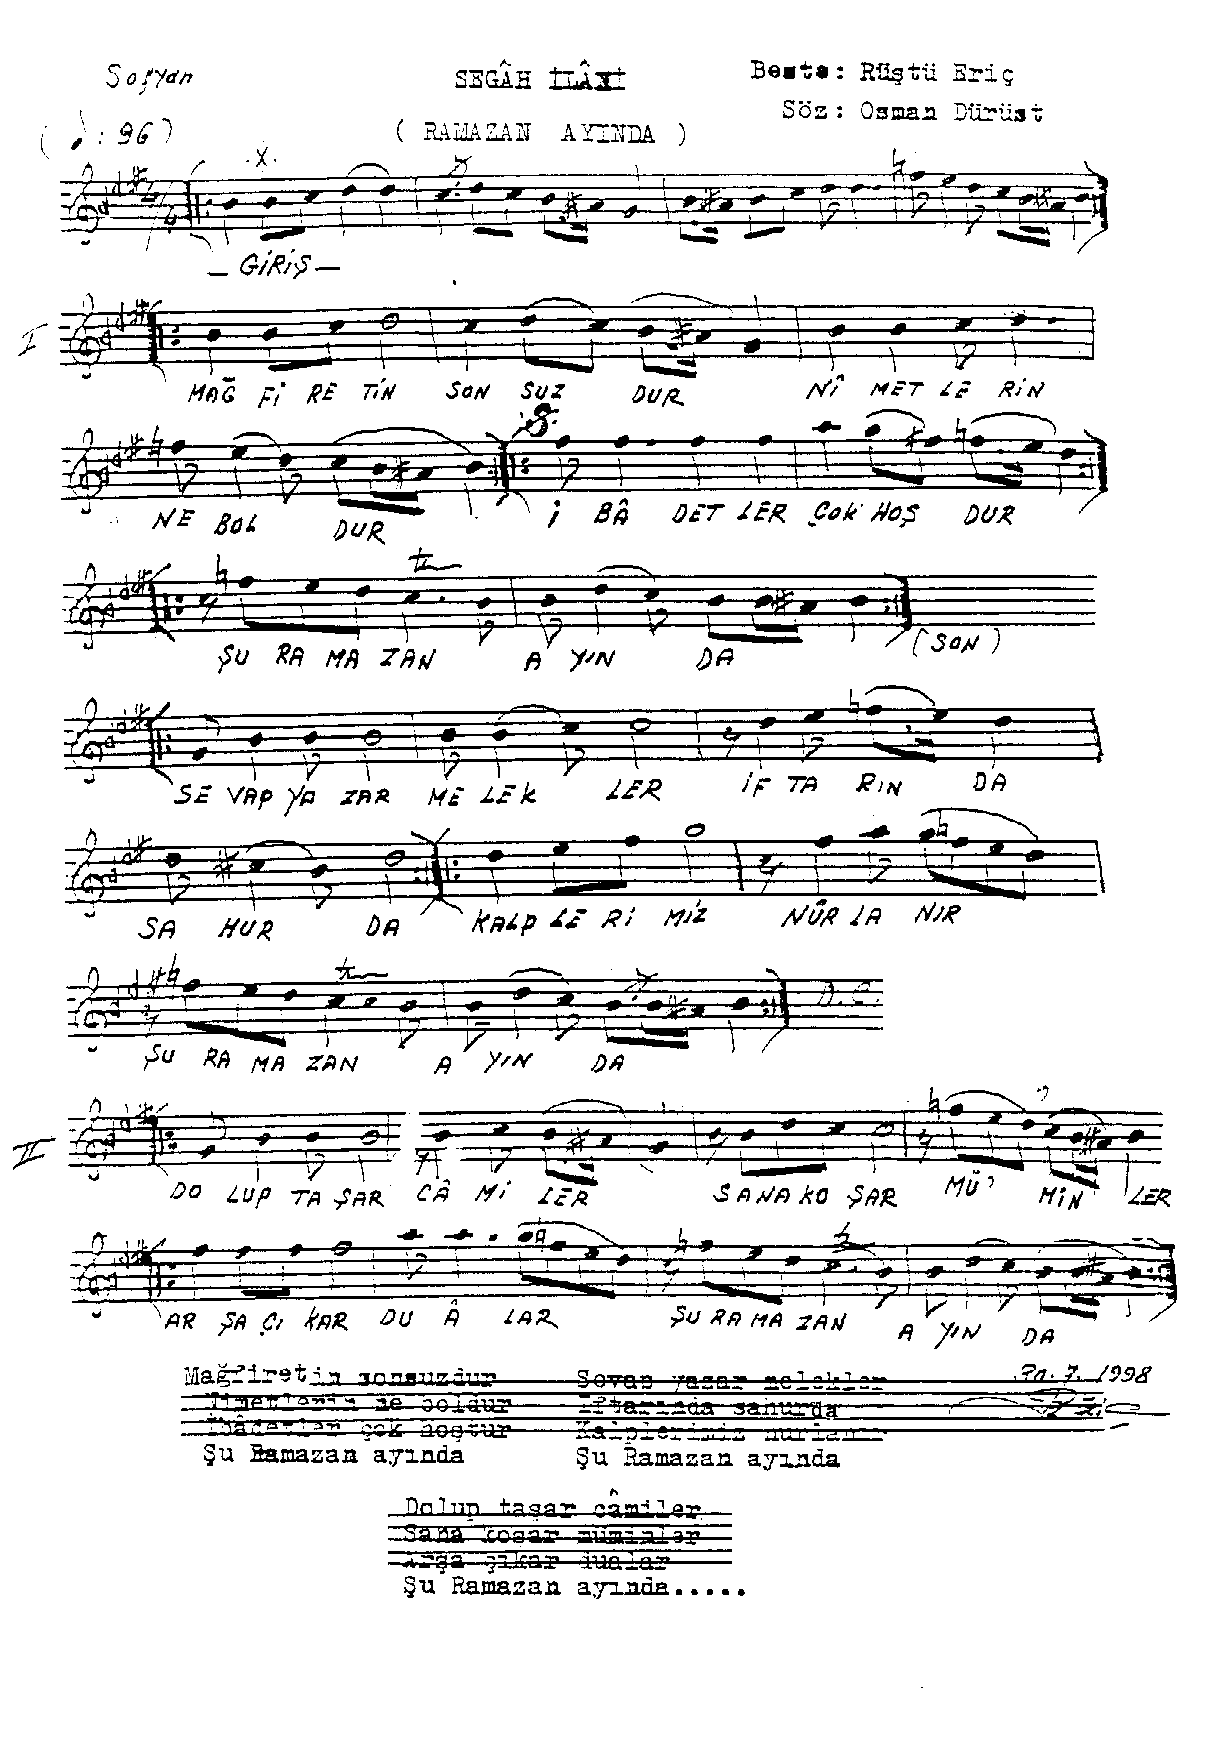 Sofyan
SEGÂH İLÂHİ
Beste: Rüştü Eriç
Söz: Osman Dürüst
( ♩: 96 )
( RAMAZAN AYINDA )
— GİRİŞ —
I
MAĞ Fİ RE TİN SON SUZ DUR NÎ MET LE RİN
NE BOL DUR İ BÂ DET LER ÇOK HOŞ DUR
ŞU RA MA ZAN A YIN DA (SON)
SE VAP YA ZAR ME LEK LER İF TA RIN DA
SA HUR DA KALP LE Rİ MİZ NÛR LA NIR
D.C.
ŞU RA MA ZAN A YIN DA
II
DO LUP TA ŞAR CÂ Mİ LER SANA KO ŞAR MÜ' MİN LER
AR ŞA ÇI KAR DU Â LAR ŞU RA MA ZAN A YIN DA
Mağfiretin sonsuzdur
Nimetlerin ne boldur
İbâdetler çok hoştur
Şu Ramazan ayında
Sevap yazar melekler
İftarında sahurda
Kalplerimiz nurlanır
Şu Ramazan ayında
7. 1998
Dolup taşar câmiler
Sana koşar müminler
Arşa çıkar dualar
Şu Ramazan ayında.....